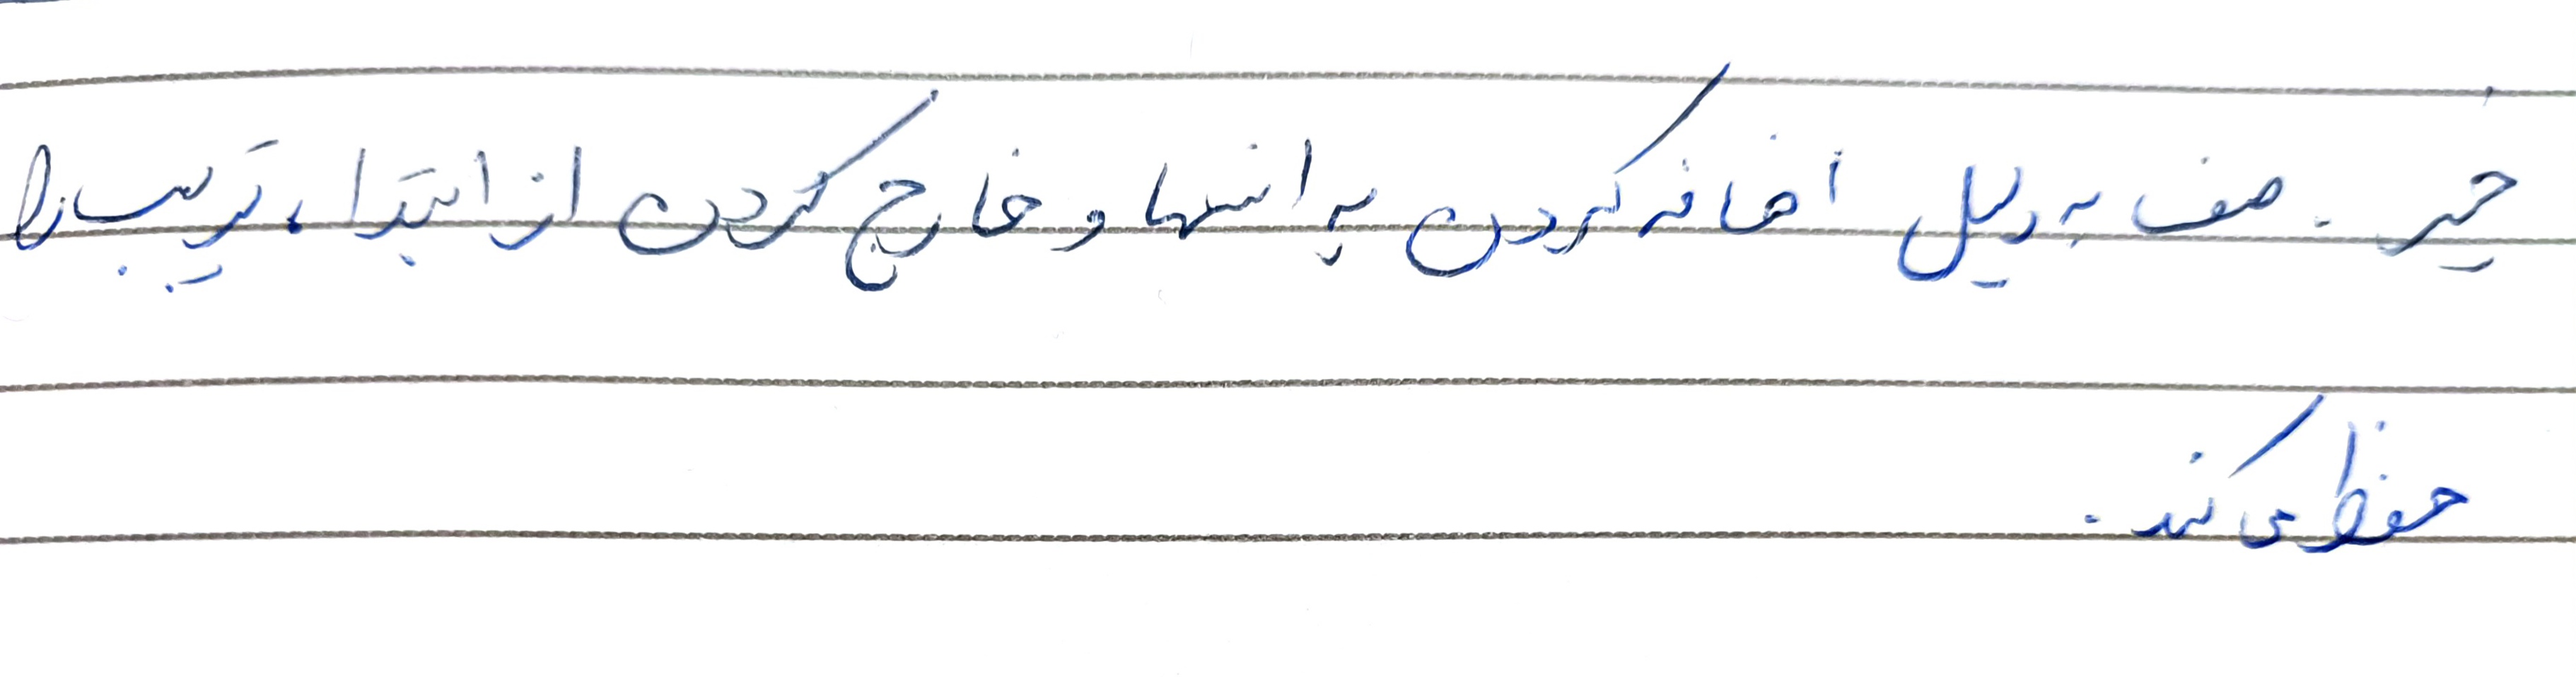 خیر. صف به دلیل اضافه کردن به انتها و خارج کردن از ابتدا، ترتیب را
حفظ می کند.